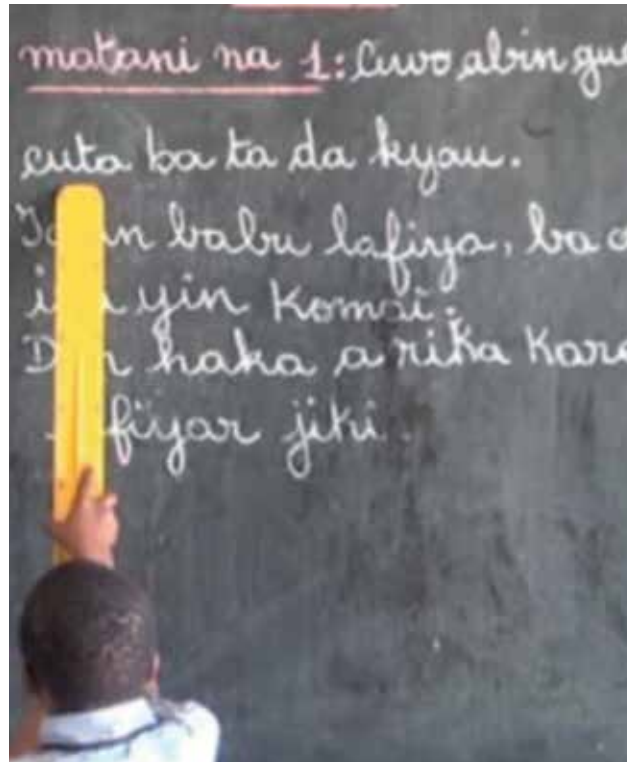 matani na 1: Ciwo abin gu
cuta ba ta da kyau.
in babu lafiya, ba
yin komai.
haka a riƙa kar
fiyar jiki.